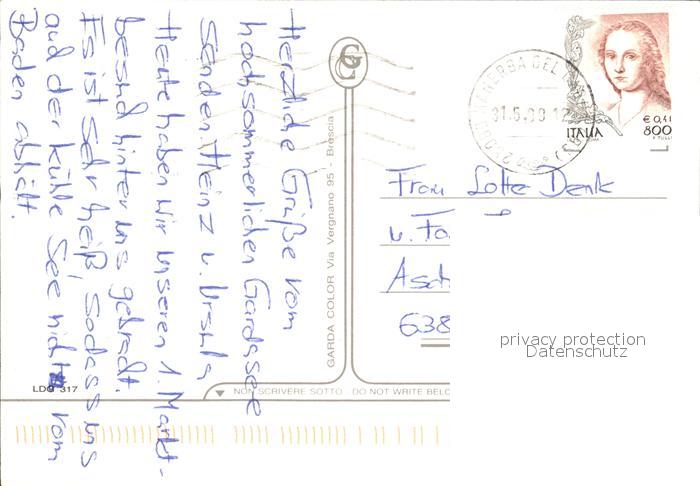 Herzliche Grüße vom
hochsommerlichen Gardasee
senden Heinz u. Ursula,
Heute haben wir unseren 1. Markt-
besuch hinter uns gebracht.
Es ist sehr heiß, sodass uns
auch der kühle See nicht vom
Baden abhält.
GARDA COLOR Via Vergnano 95 - Brescia
LDG 317
NON SCRIVERE SOTTO - DO NOT WRITE BELO
31.5.00.12
ITALIA
€ 0,41
800
Frau Lotte Denk
u. Fa
Asch
638
privacy protection
Datenschutz